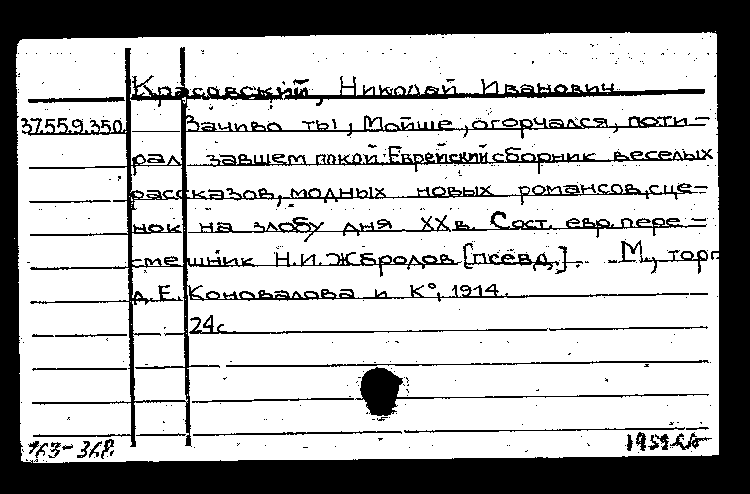 Красавский, Николай Иванович
37.55.9.350. Зачиво ты, Мойше, огорчался, поти-
рал завшем покой. Еврейский сборник веселых
рассказов, модных новых романсов, сце-
нок на злобу дня XX в. Сост. евр. пере-
смешник Н.И. Жбродов [псевд.]. М., торг
д. Е. Коновалова и К°, 1914.
24с.
163-368